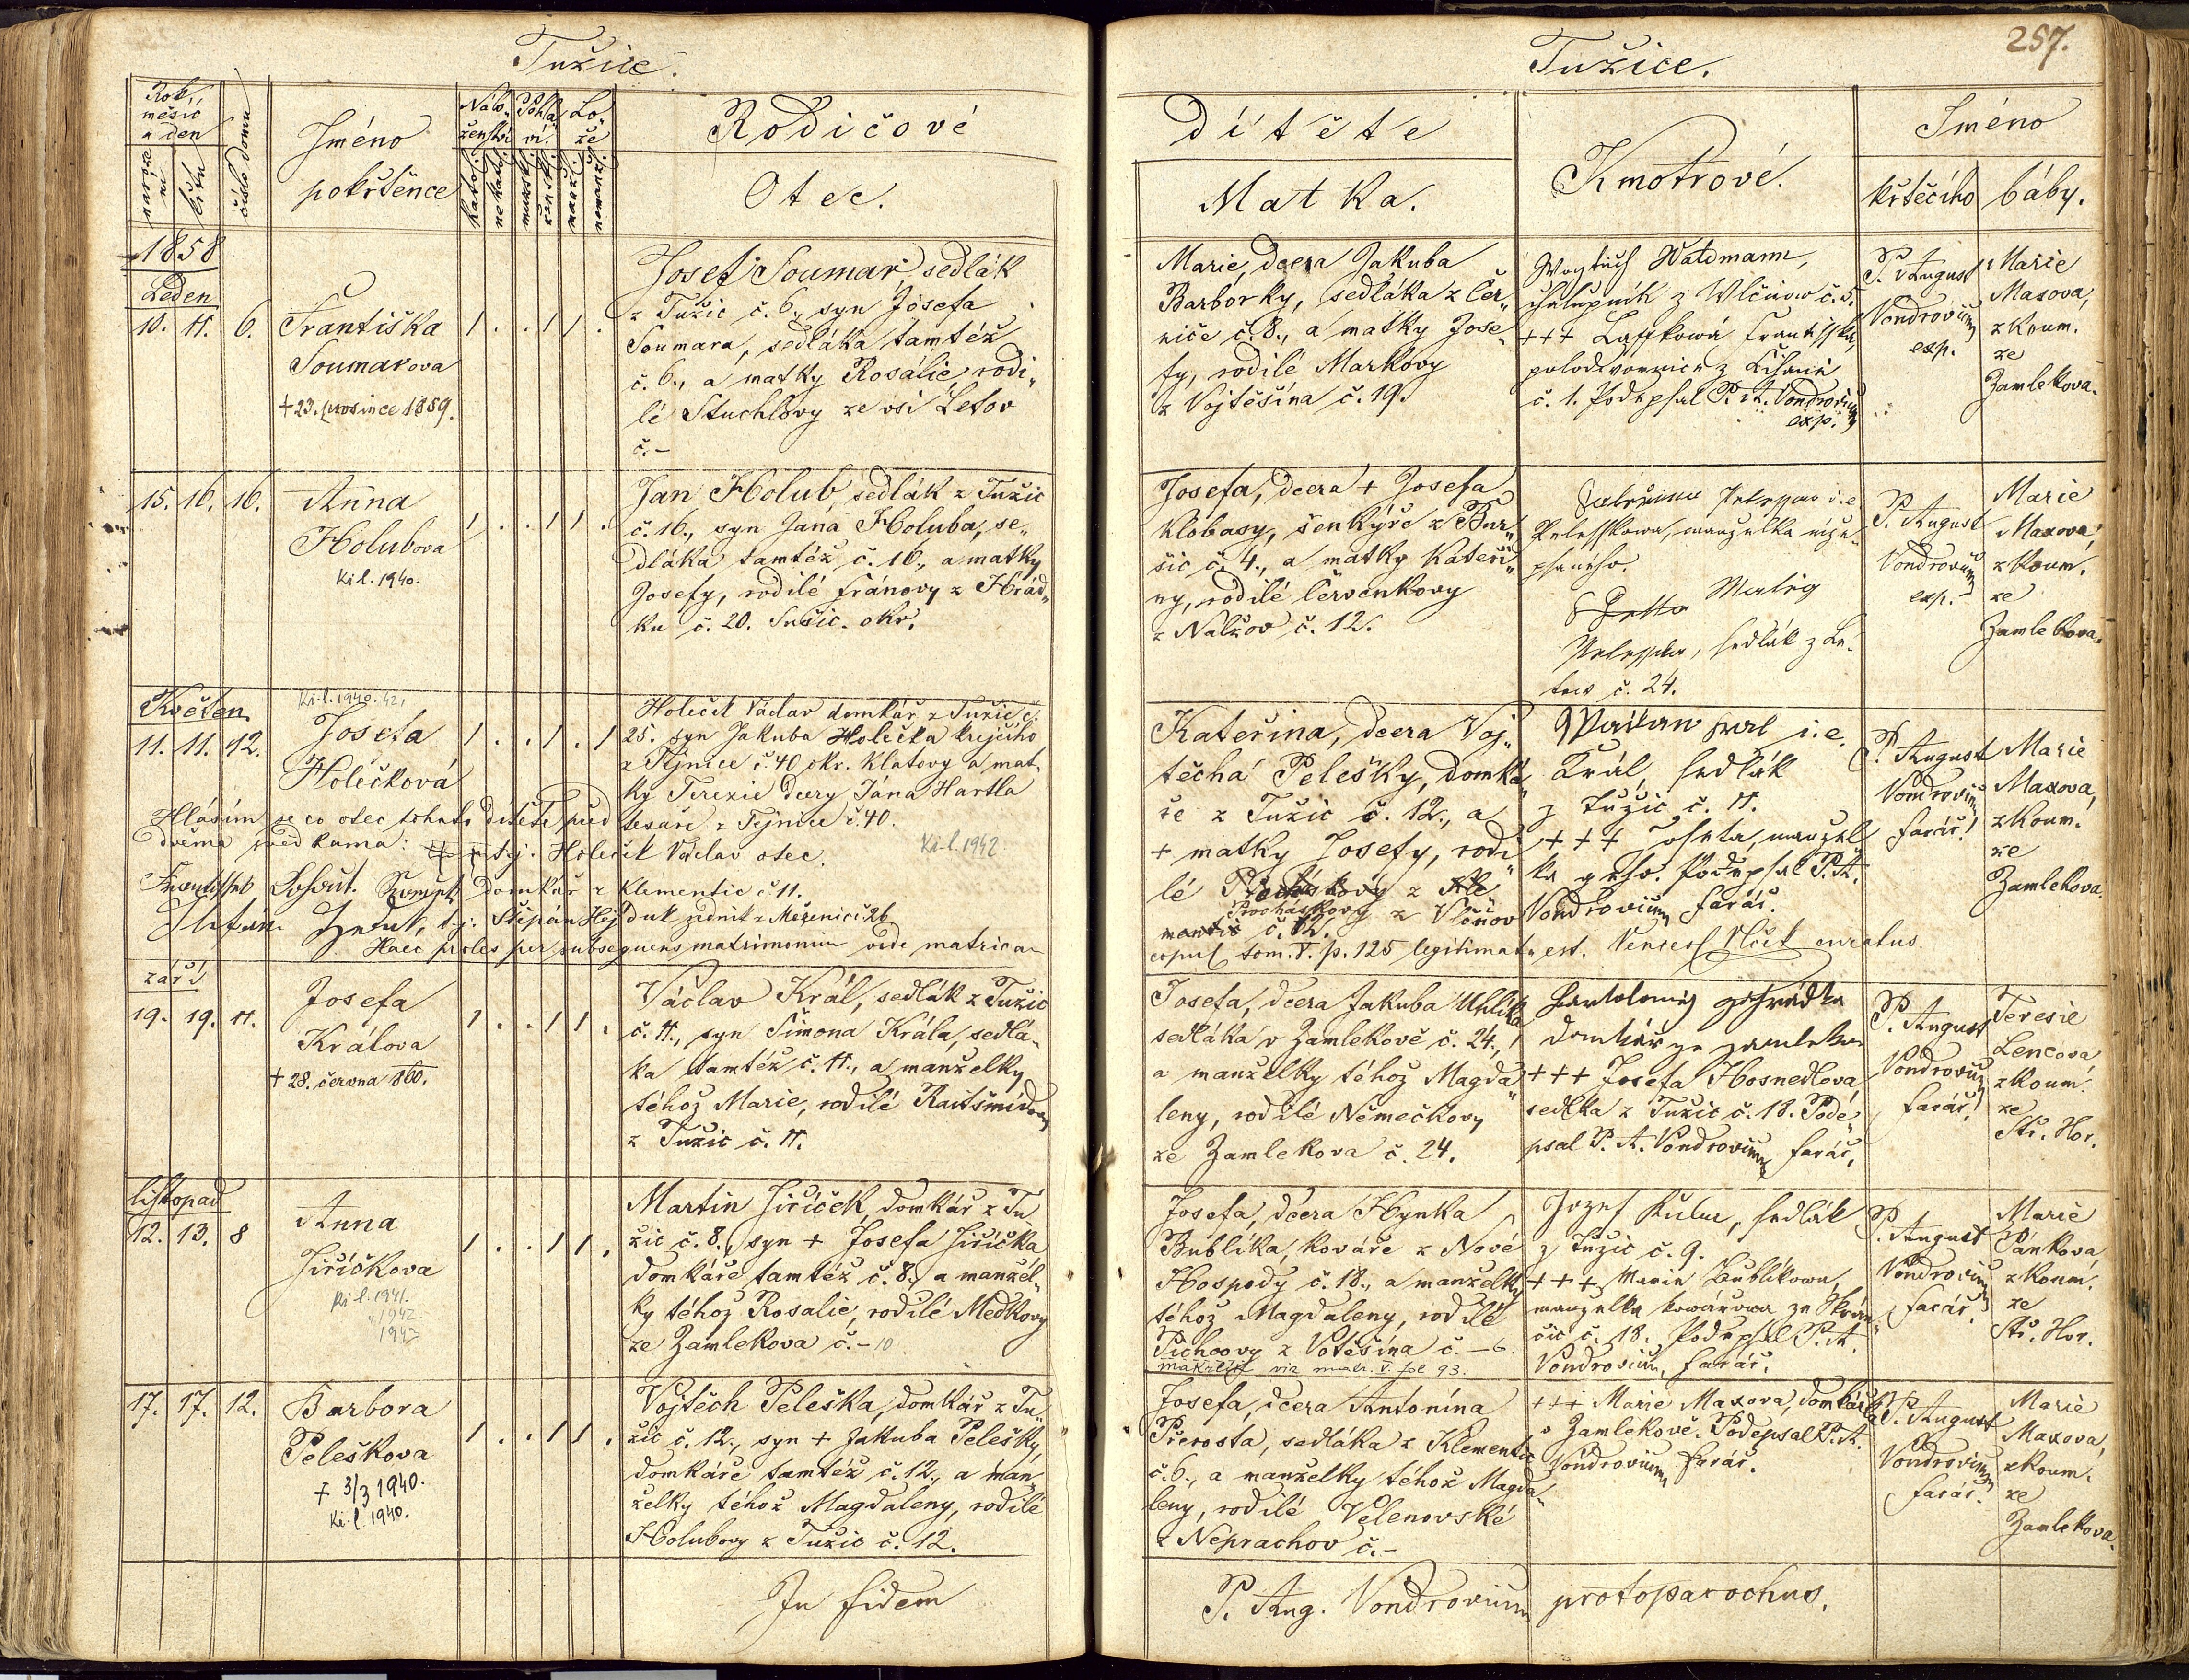 Tužice.
Rok,
měsíc
a den
naroze
ní
křtu
číslo domu
Jméno
pokřtěnce
Nábo„
ženství
katol.
nekatol.
Pohla„
ví.
mužsk.
žensk.
Lo„
že
manž.
nemanž.
Rodičové
Otec.
1858
Leden
10. 11. 6.
Františka
Soumarova
+ 23. prosince 1859.
1 . . 1 1 .
Josef Soumar, sedlák
z Tužic č. 6., syn Josefa
Soumara, sedláka tamtéž
č. 6., a matky Rosálie, rodi„
lé Stuchlovy ze vsi Letov
č. –
15. 16. 16.
Anna
Holubova
Ki l. 1940.
1 . . 1 1 .
Jan Holub, sedlák z Tužic
č. 16., syn Jana Holuba, se„
dláka tamtéž č. 16., a matky
Josefy, rodilé Fránovy z Hrád„
ku č. 20. Sušic. okr.
Květen
11. 11. 42.
Ki l. 1940. 42.
Josefa
Holečková
1 . . 1 . 1
Holeček Václav domkář z Tužic č.
25. syn Jakuba Holečka krejčího
z Týnice č. 40 okr. Klatovy a mat„
ky Terezie dcery Jána Hartla
tesaře z Tejnice č. 40.
Ki l. 1942
Hlásím se co otec tohoto dítěte před
dvěma svědkama: +++ tj. Holeček Václav otec.
domkář z Klementic č. 11.
tj: Štěpán Hejduk zedník z Měřenic č. 26
Haec proles per subsequens matrimonium vide matricam
září
19. 19. 11.
Josefa
Králova
+ 28. června 1860.
1 . . 1 1 .
Václav Král, sedlák z Tužic
č. 11., syn Šimona Krále, sedlá„
ka tamtéž č. 11., a manželky
téhož Marie, rodilé Raitšmídovy
z Tužic č. 11.
listopad
12. 13. 8
Anna
Jiříčkova
Ki l. 1941.
1942.
1943
1 . . 1 1 .
Martin Jiříček, domkář z Tu„
žic č. 8., syn + Josefa Jiříčka
domkáře tamtéž č. 8., a manžel„
ky téhož Rosalie, rodilé Medkovy
ze Zamlekova č. – 10
17. 17. 12.
Barbora
Peleškova
+ 3/3 1940.
Ki l. 1940.
1 . . 1 1 .
Vojtěch Peleška, domkář z Tu„
žic č. 12., syn + Jakuba Pelešky,
domkáře tamtéž č. 12., a man„
želky téhož Magdaleny, rodilé
Holubovy z Tužic č. 12.
In fidem
257.
Tužice.
dítěte
Matka.
Kmotrové.
Jméno
křtěcího
báby.
Marie, dcera Jakuba
Barborky, sedláka z Čer„
nice č. 8., a matky Jose„
fy, rodilé Markovy
z Vojtěšína č. 19.
Woytěch Waldmann,
chalupník z Wlčnow č. 5.
+++ Františka,
č. 1. Podepsal P. A. Vondrovicz
exp.
P. August
Vondrovicz
exp.
Marie
Maxova,
z Koum.
ze
Zamlekova.
Josefa, dcera + Josefa
Klobasy, šenkýře z Bur„
šic č. 4., a matky Kateři„
ny, rodilé Červenkovy
z Nalžov č. 12.
Peleškowa, manželka níže„
psaného.
sedlák z Le„
tow č. 24.
P. August
Vondrovicz
exp.
Marie
Maxova,
z Koum.
ze
Zamlekova.
Kateřina, dcera Voj„
těcha Pelešky, domká„
ře z Tužic č. 12., a
+ matky Josefy, rodi„
lé
Procházkovy z Vlčnov
č. 12.
i. e.
Král, sedlák
z Tužic č. 11.
+++ Josefa, manžel„
ka geho. Podepsal P. A.
Vondrovicz farář.
P. August
Vondrovicz
farář.
Marie
Maxova,
z Koum.
ze
Zamlekova.
copul tom. V. p. 125 legitimata est. Vencesl Vlček curatus.
Josefa, dcera Jakuba Uhlíka
sedláka v Zamlekově č. 24.,
a manželky téhož Magda„
leny, rodilé Němečkovy
ze Zamlekova č. 24.
domkář ze Zamlekova
+++ Josefa Hosnedlová
sedlka z Tužic č. 18. Pode„
psal P. A. Vondrovicz farář.
P. August
Vondrovicz
farář.
Teresie
Lencova
z Koum.
ze
Stř. Hor.
Josefa, dcera Hynka
Bublíka, kováře z Nové
Hospody č. 18., a manželky
téhož Magdaleny, rodilé
Tichovy z Votěšína č. – 6.
viz matr. V. fol 93.
Jozef Kuba, sedlák
z Tužic č. 9.
+++ Marie Bublíkowa,
manželka kowářowa ze
č. 18. Podepsal P. A.
Vondrovicz, farář.
P. August
Vondrovicz
farář.
Marie
Pánkova
z Koum.
ze
Stř. Hor.
Josefa, dcera Antonína
Přerosta, sedláka z Klementic
č. 6., a manželky téhož Magda„
leny, rodilé Velenovské
z Neprachov č. –
+++ Marie Maxova, domkářka
v Zamlekově. Podepsal P. A.
Vondrovicz farář.
P. August
Vondrovicz
farář.
Marie
Maxova,
z Koum.
ze
Zamlekova.
P. Aug. Vondrovicz protoparochus.